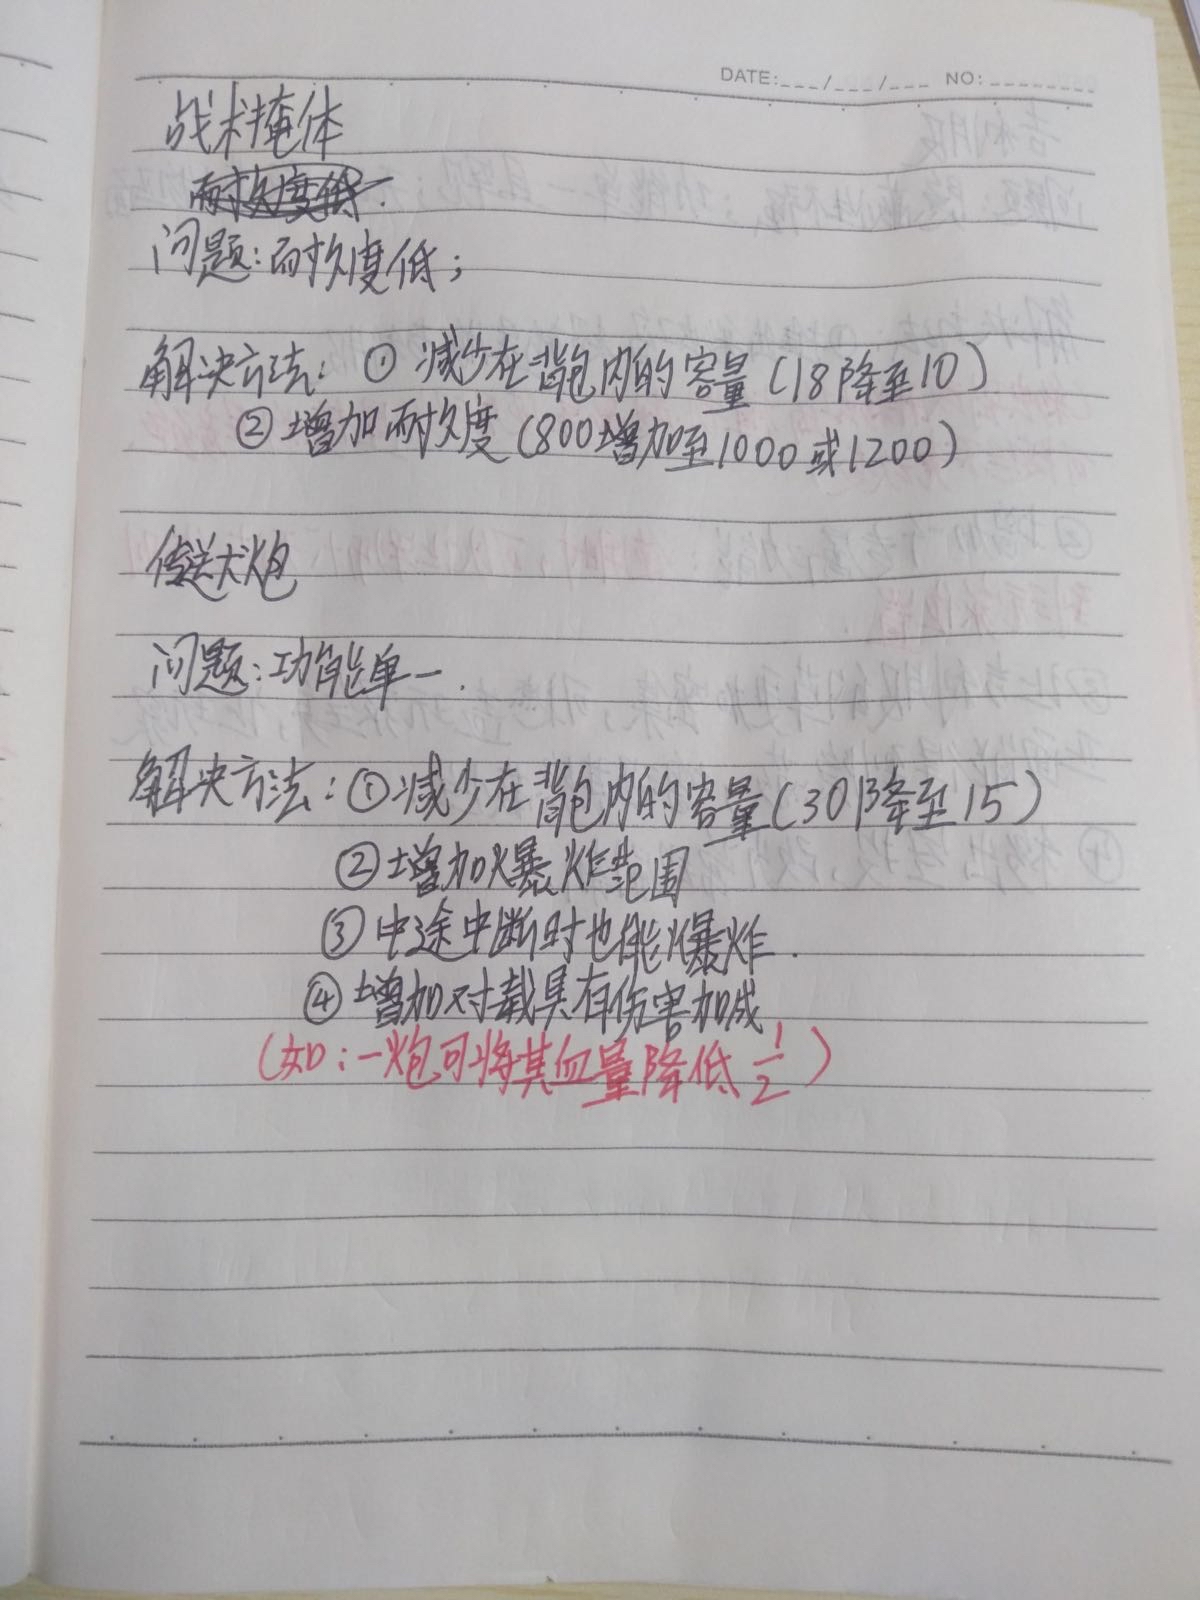 DATE:___/___/___ NO:________
战术掩体
耐久度低.
问题:耐久度低;
解决方法:①减少在背包内的容量(18降至10)
②增加耐久度(800增加至1000或1200)
传送火炮
问题:功能单一.
解决方法:①减少在背包内的容量(30降至15)
②增加爆炸范围
③中途中断时也能爆炸.
④增加对载具有伤害加成
(如:一炮可将其血量降低1/2)